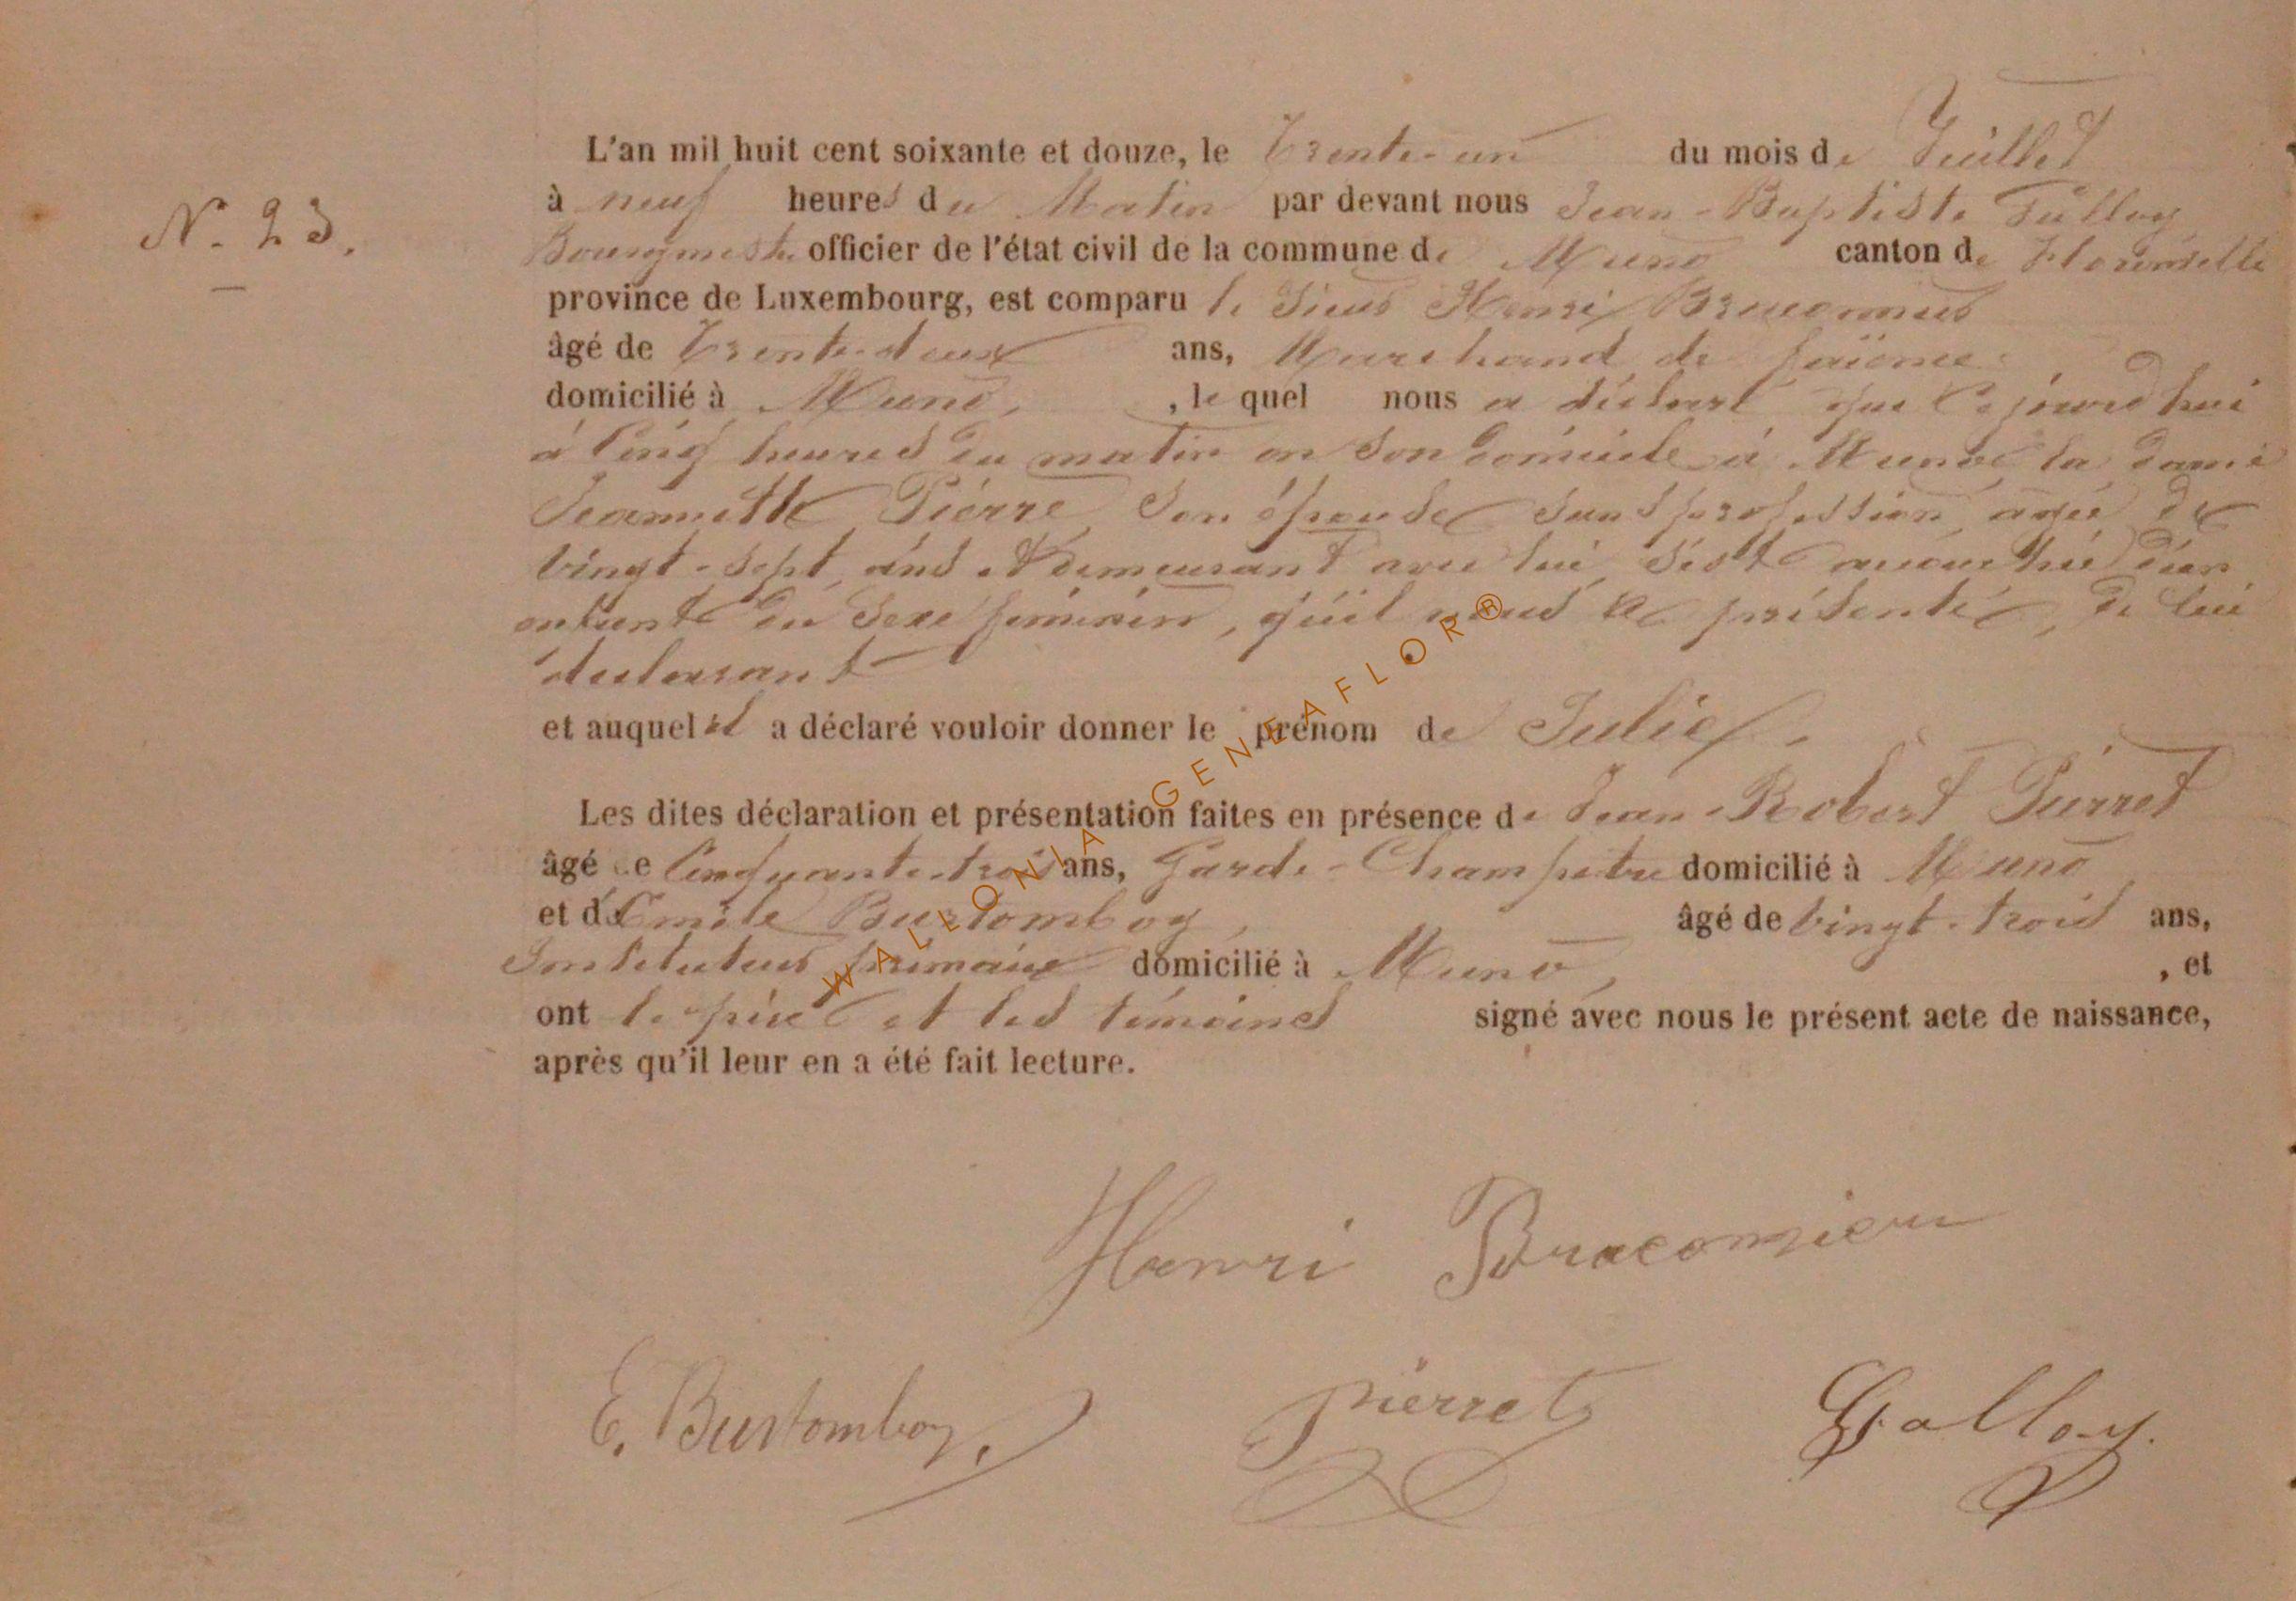 L'an mil huit cent soixante et douze, le Trente-un du mois de Juillet
N. 23.
à neuf heures du Matin par devant nous Jean-Baptiste
Bourgmestre officier de l'état civil de la commune de Muno canton de Florenville
province de Luxembourg, est comparu le Sieur Henri Braconnier
âgé de Trente-deux ans, Marchand de faïence
domicilié à Muno, , le quel nous a déclaré que Cejourd'hui
à Cinq heures du matin en Son domicile à Muno, la dame
Jeannette Pierre, Son épouse, Sans profession, agée de
vingt-sept ans et demeurant avec lui, s'est accouchée d'un
enfant du Sexe féminin, qu'il nous a présenté, de lui
déclarant
et auquel il a déclaré vouloir donner le prénom de Julie.
Les dites déclaration et présentation faites en présence de Jean-Robert Pierret
âgé de Cinquante-trois ans, Garde-Champetre domicilié à Muno
et de Emile Burtomboy, âgé de vingt-trois ans,
Instituteur primaire domicilié à Muno, , et
ont le père et les témoins signé avec nous le présent acte de naissance,
après qu'il leur en a été fait lecture.
Henri Braconnier
E. Burtomboy. Pierret Galloy.
WALLONIA GENEAFLOR®